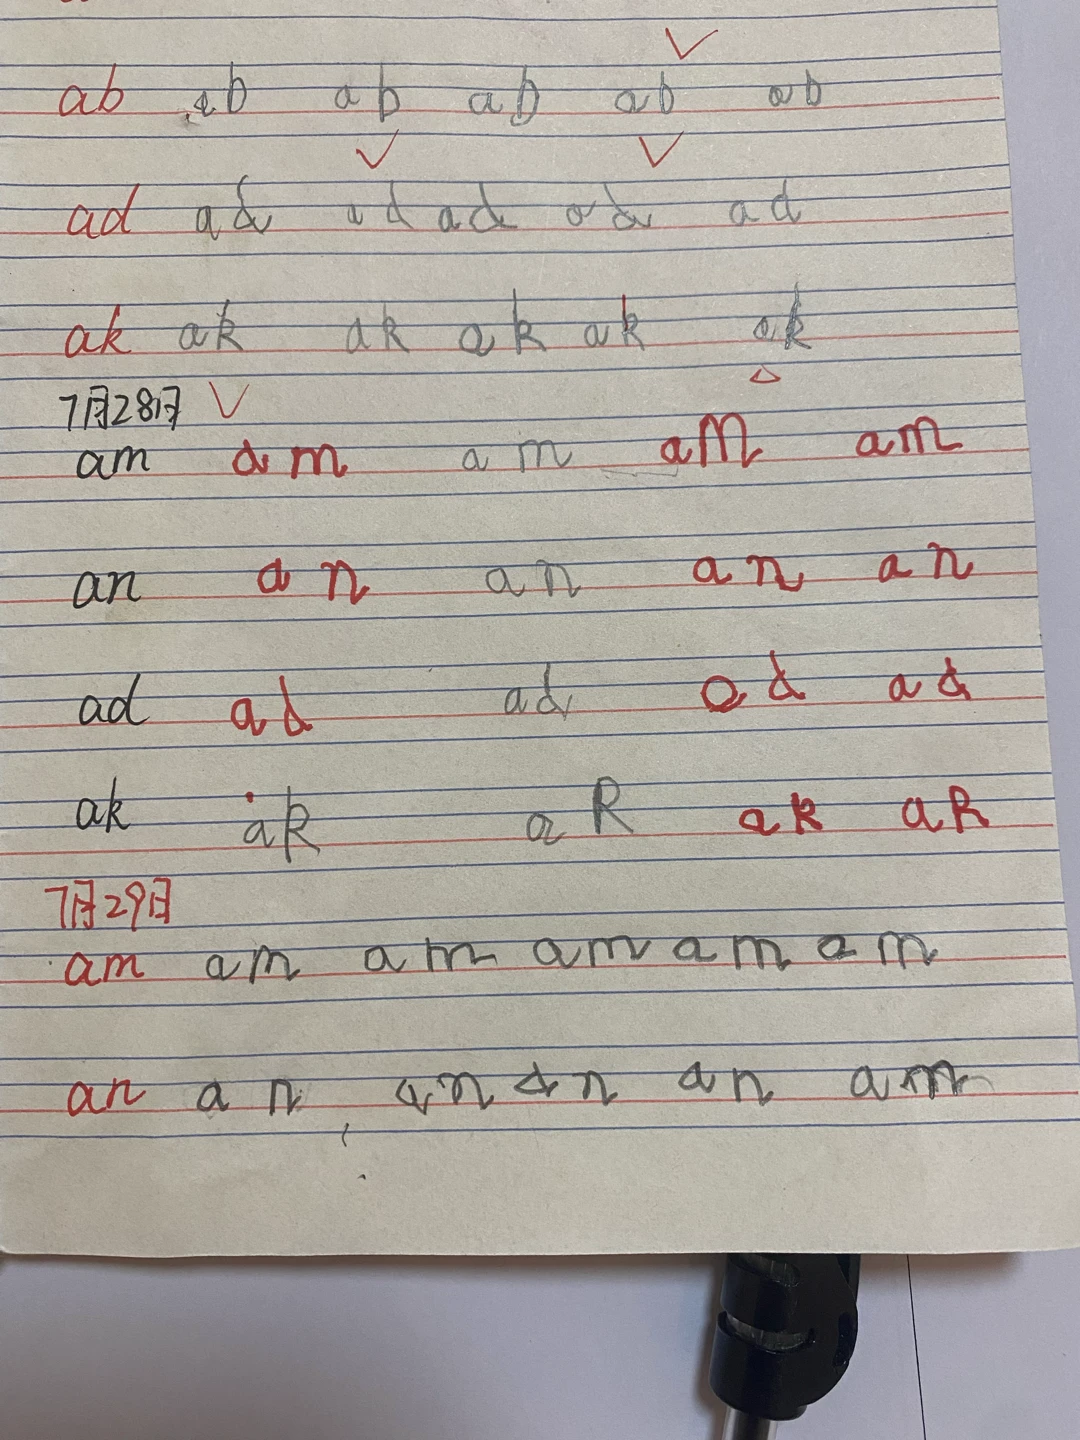 ab ab ab ab ab ab
ad ad ad ad ad ad
ak ak ak ak ak ak
7月28日
am am am aM am
an an an an an
ad ad ad ad ad
ak ak aR ak aR
7月29日
am am am am am am
an an an an an am